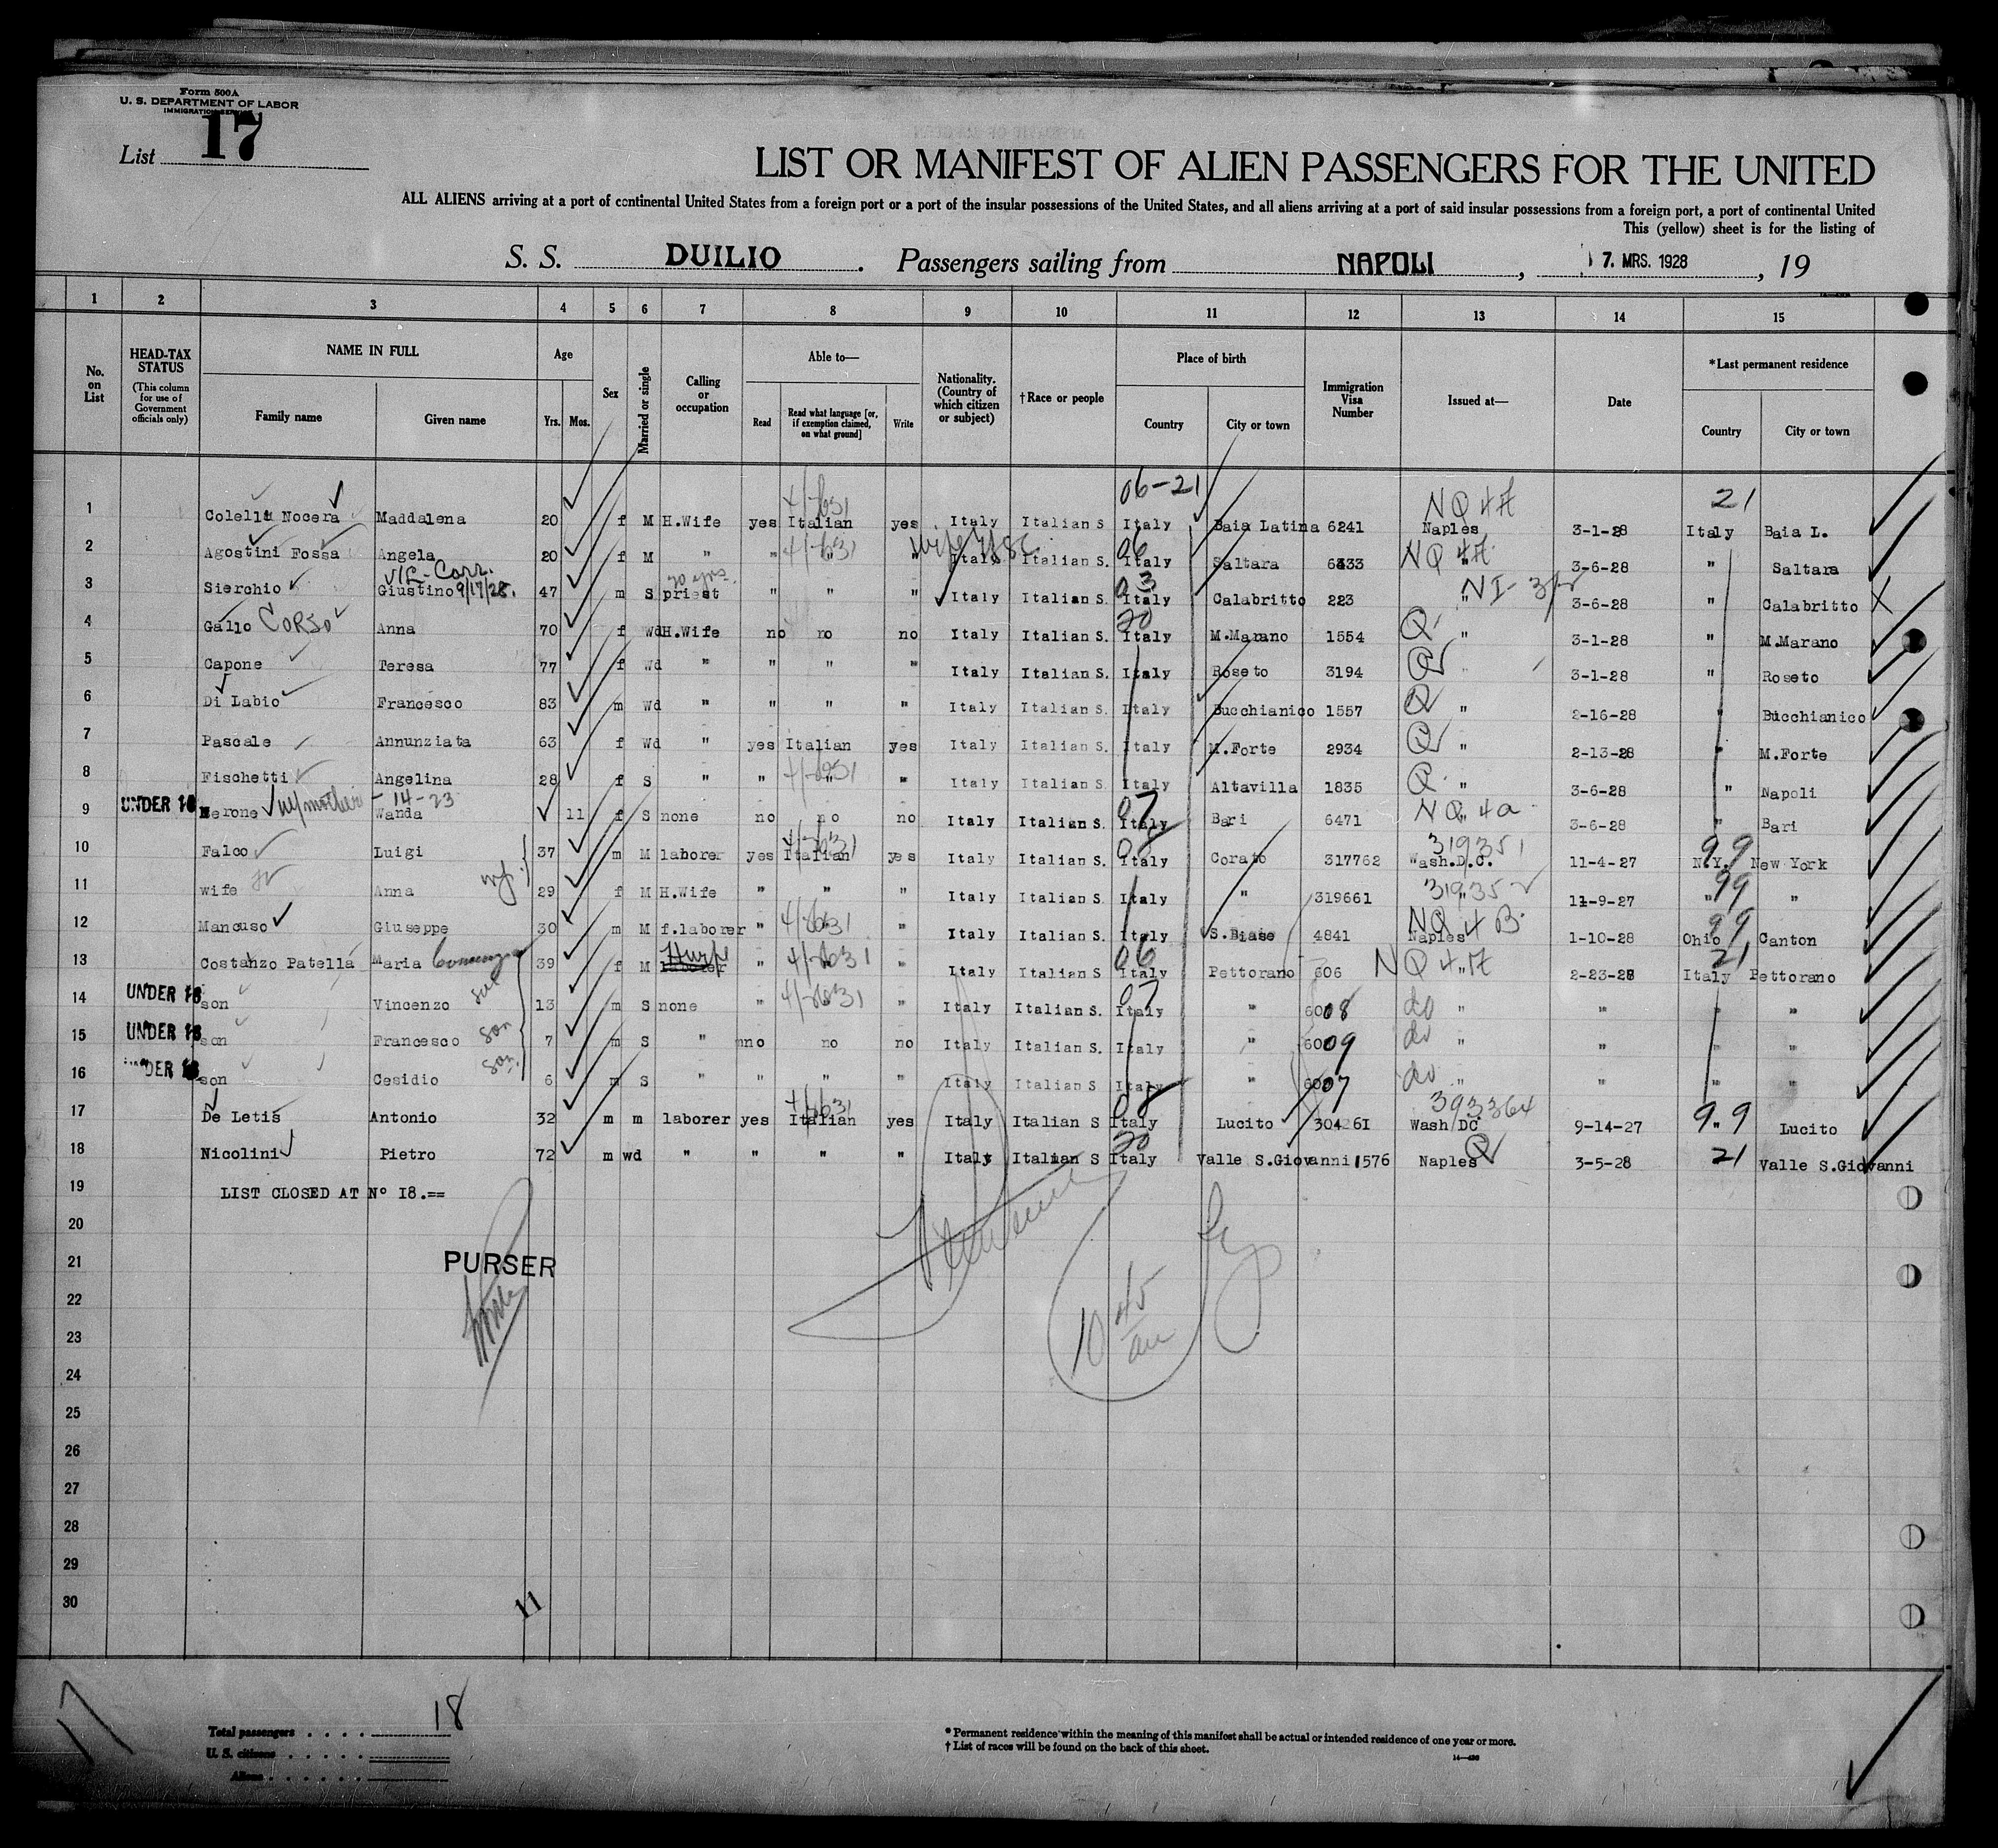 Form 500A
U. S. DEPARTMENT OF LABOR
IMMIGRATION SERVICE
List 17
LIST OR MANIFEST OF ALIEN PASSENGERS FOR THE UNITED
ALL ALIENS arriving at a port of continental United States from a foreign port or a port of the insular possessions of the United States, and all aliens arriving at a port of said insular possessions from a foreign port, a port of continental United
This (yellow) sheet is for the listing of
S. S. DUILIO. Passengers sailing from NAPOLI, 7. MRS. 1928, 19
1 2 3 4 5 6 7 8 9 10 11 12 13 14 15
No. on List
HEAD-TAX STATUS
(This column for use of Government officials only)
NAME IN FULL
Family name Given name
Age
Yrs. Mos.
Sex
Married or single
Calling or occupation
Able to—
Read Read what language [or, if exemption claimed, on what ground] Write
Nationality. (Country of which citizen or subject)
†Race or people
Place of birth
Country City or town
Immigration Visa Number
Issued at—
Date
*Last permanent residence
Country City or town
06-21 NQ 4A 21
1 Colella Nocera Maddalena 20 f M H.Wife yes Italian yes Italy Italian S Italy Baia Latina 6241 Naples 3-1-28 Italy Baia L.
2 Agostini Fossa Angela 20 f M " " " " Italy Italian S. 06 Italy Saltara 6433 NQ 4A " 3-6-28 " Saltara
V/L-Corr. 9/17/28. 20 yrs.
3 Sierchio Giustino 47 m S priest " " " Italy Italian S. 03 Italy Calabritto 223 NI-3 " 3-6-28 " Calabritto X
4 Gallo Corso Anna 70 f wd H.Wife no no no Italy Italian S. 20 Italy M.Marano 1554 Q " 3-1-28 " M.Marano
5 Capone Teresa 77 f wd " " " " Italy Italian S. Italy Roseto 3194 Q " 3-1-28 " Roseto
6 Di Labio Francesco 83 m wd " " " " Italy Italian S. Italy Bucchianico 1557 Q " 2-16-28 " Bucchianico
7 Pascale Annunziata 63 f Wd " yes Italian yes Italy Italian S. Italy M.Forte 2934 Q " 2-13-28 " M.Forte
8 Fischetti Angelina 28 f S " " " " Italy Italian S. Italy Altavilla 1835 Q " 3-6-28 " Napoli
9 UNDER 16 Nerone w/mother -14-23 Wanda 11 f S none no no no Italy Italian S. 07 Italy Bari 6471 NQ 4a " 3-6-28 " Bari
10 Falco Luigi 37 m M laborer yes Italian yes Italy Italian S. 08 Italy Corato 317762 319351 Wash.D.C. 11-4-27 99 N.Y. New York
11 wife Anna 29 f M H.Wife " " " Italy Italian S. Italy " 319661 31935 " 11-9-27 " 99 "
12 Mancuso Giuseppe 30 m M f.laborer " " " Italy Italian S. Italy S.Biase 4841 NQ 4 B Naples 1-10-28 99 Ohio Canton
13 Costanzo Patella Maria 39 f M Hwife " " " Italy Italian S 06 Italy Pettorano 606 NQ 4A " 2-23-28 21 Italy Pettorano
14 UNDER 16 son Vincenzo 13 m S none " " " Italy Italian S. 07 Italy " 6008 do " " " "
15 UNDER 16 son Francesco son 7 m S " no no no Italy Italian S. Italy " 6009 do " " " "
16 UNDER 16 son Cesidio son 6 m S " " " " Italy Italian S Italy " 6007 do " " " "
17 De Letis Antonio 32 m m laborer yes Italian yes Italy Italian S 08 Italy Lucito 304261 393364 Wash DC 9-14-27 99 " Lucito
18 Nicolini Pietro 72 m wd " " " " Italy Italian S 20 Italy Valle S.Giovanni 1576 Naples Q 3-5-28 21 Valle S.Giovanni
19 LIST CLOSED AT No 18.==
20
21 PURSER
22
23 10 45 am
24
25
26
27
28
29
30
11
17
Total passengers . . . . 18
U. S. citizens . . . . .
Aliens . . . . . .
* Permanent residence within the meaning of this manifest shall be actual or intended residence of one year or more.
† List of races will be found on the back of this sheet.